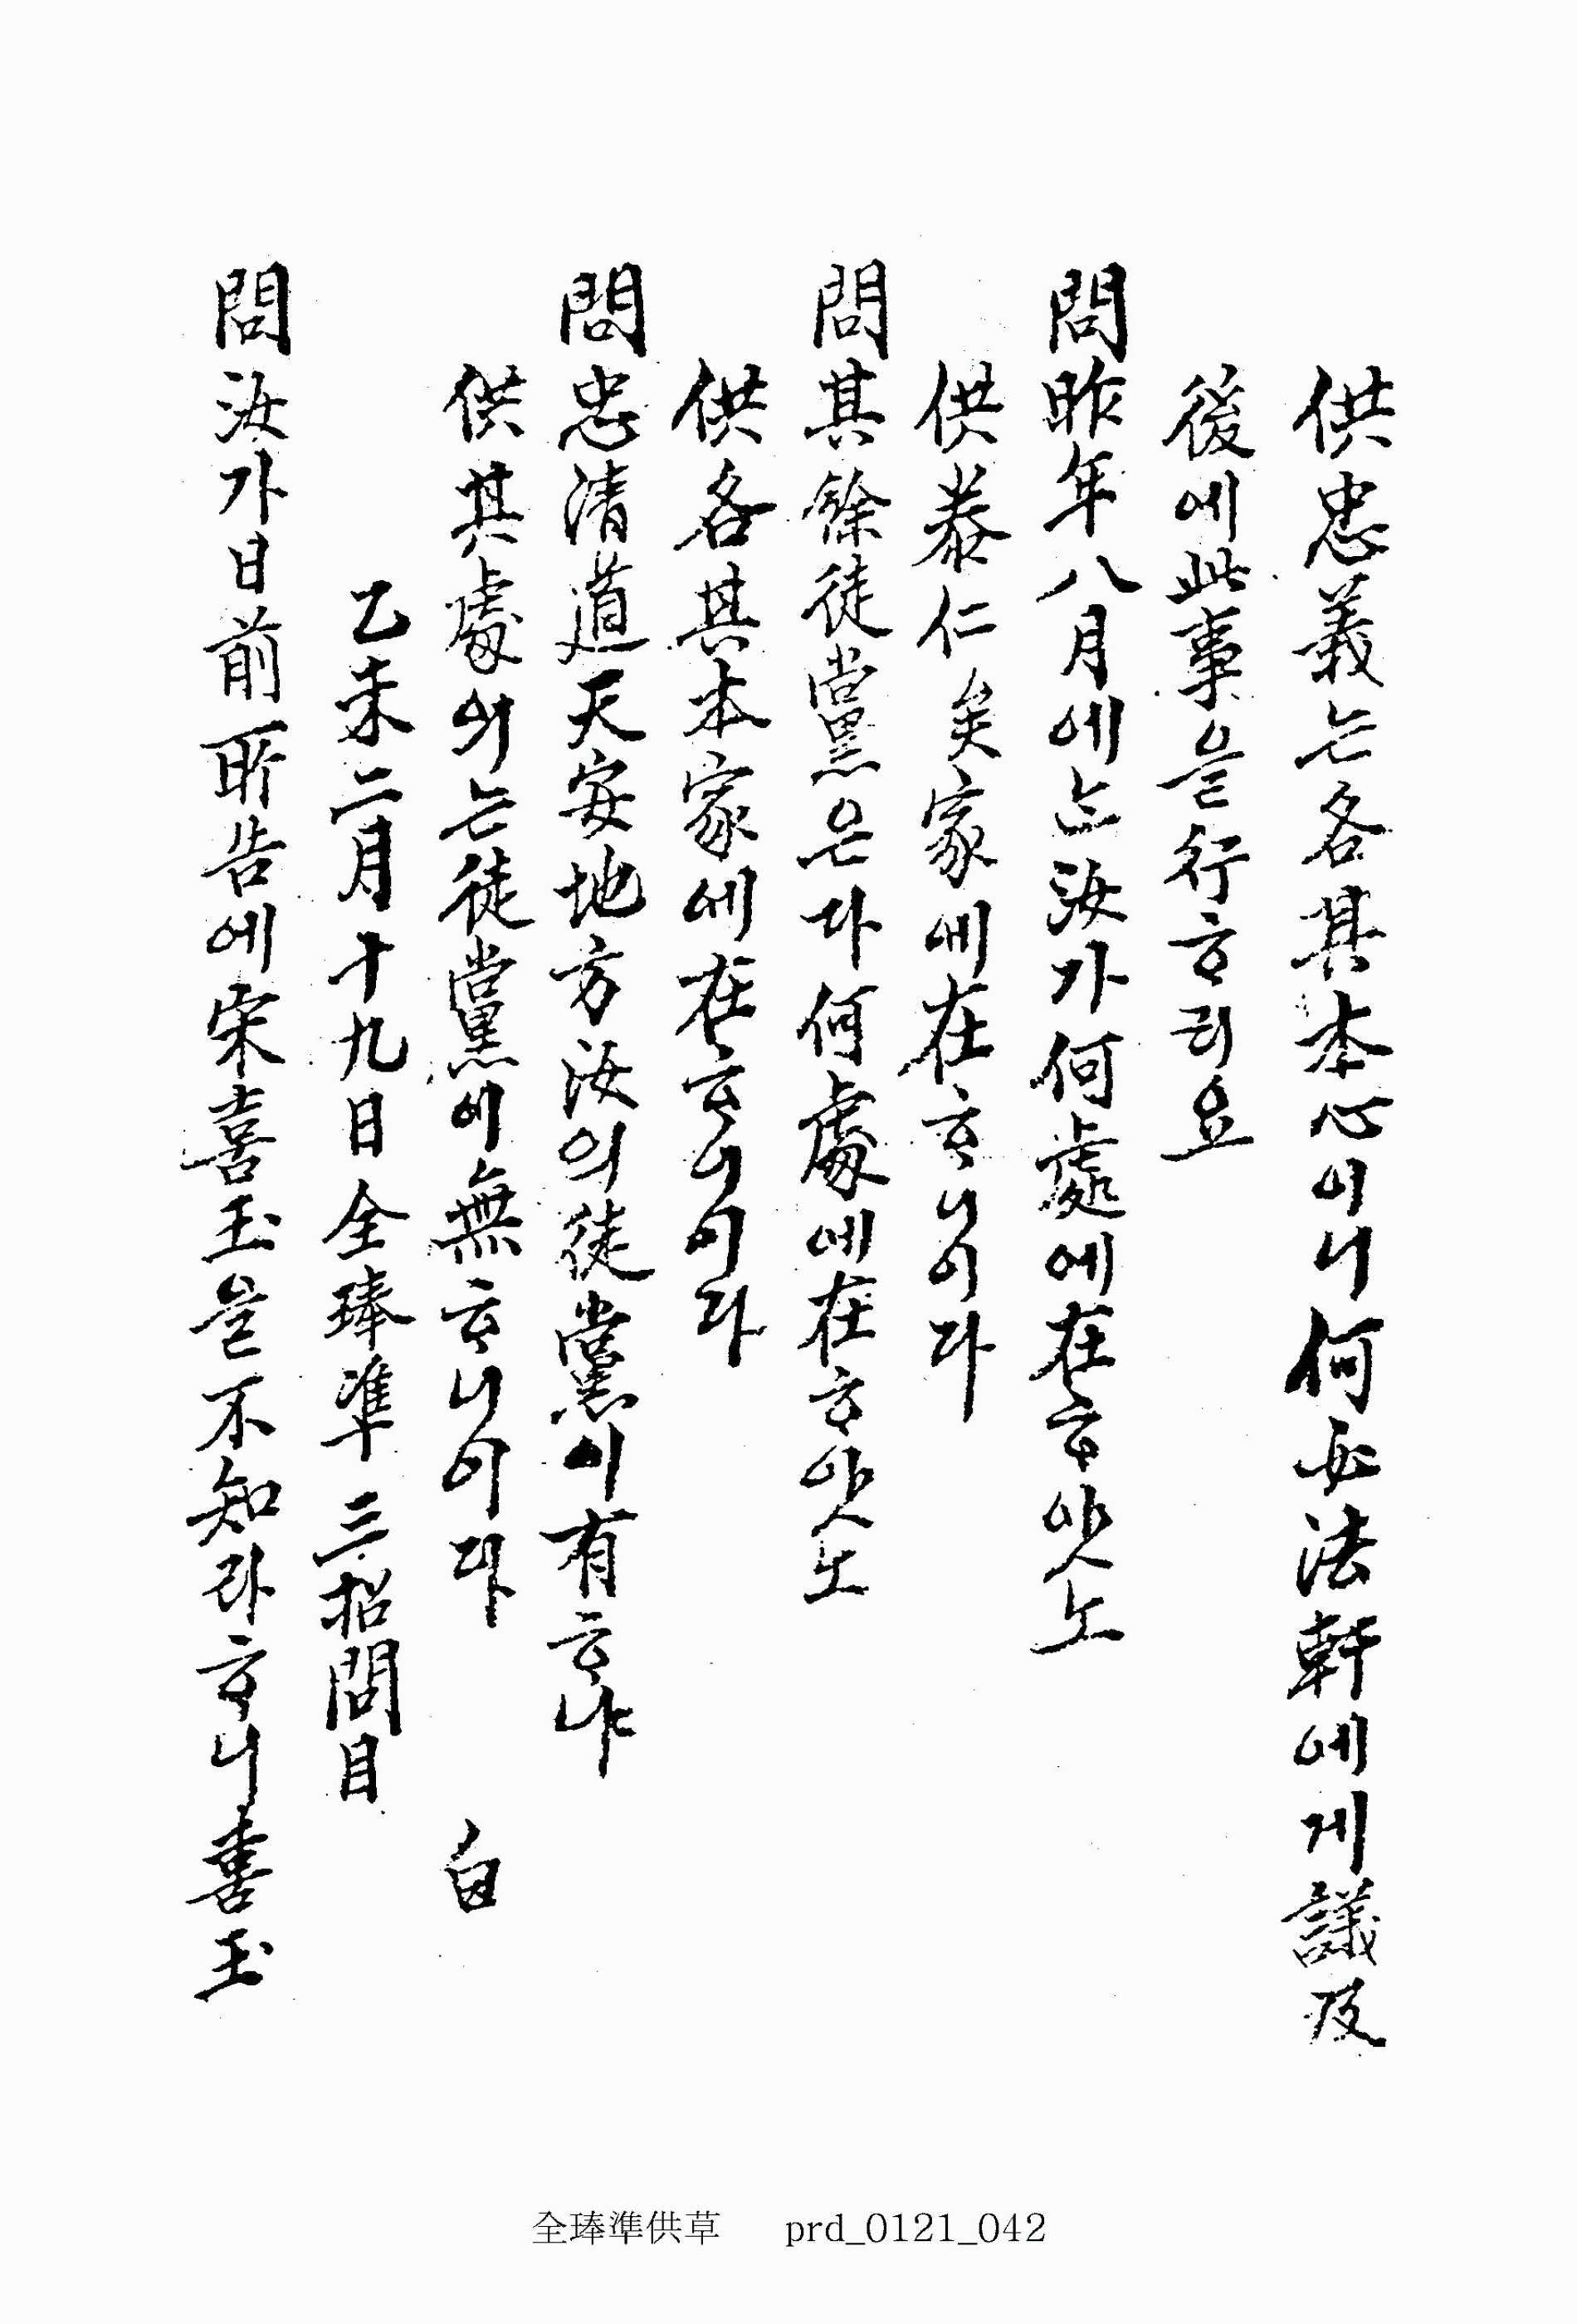 供忠義는各其本心이니何必法軒에게議及
後에此事을行ᄒᆞ리요
問昨年八月에는汝가何處에在ᄒᆞ얏노
供泰仁矣家에在ᄒᆞ니이다
問其餘徒黨은다何處에在ᄒᆞ얏노
供各其本家에在ᄒᆞ니이다
問忠淸道天安地方汝의徒黨이有ᄒᆞ냐
供其處의는徒黨이無ᄒᆞ니이다 白
乙未二月十九日全琫準三招問目
問汝가日前所告에宋喜玉을不知라ᄒᆞ니喜玉
全琫準供草 prd_0121_042